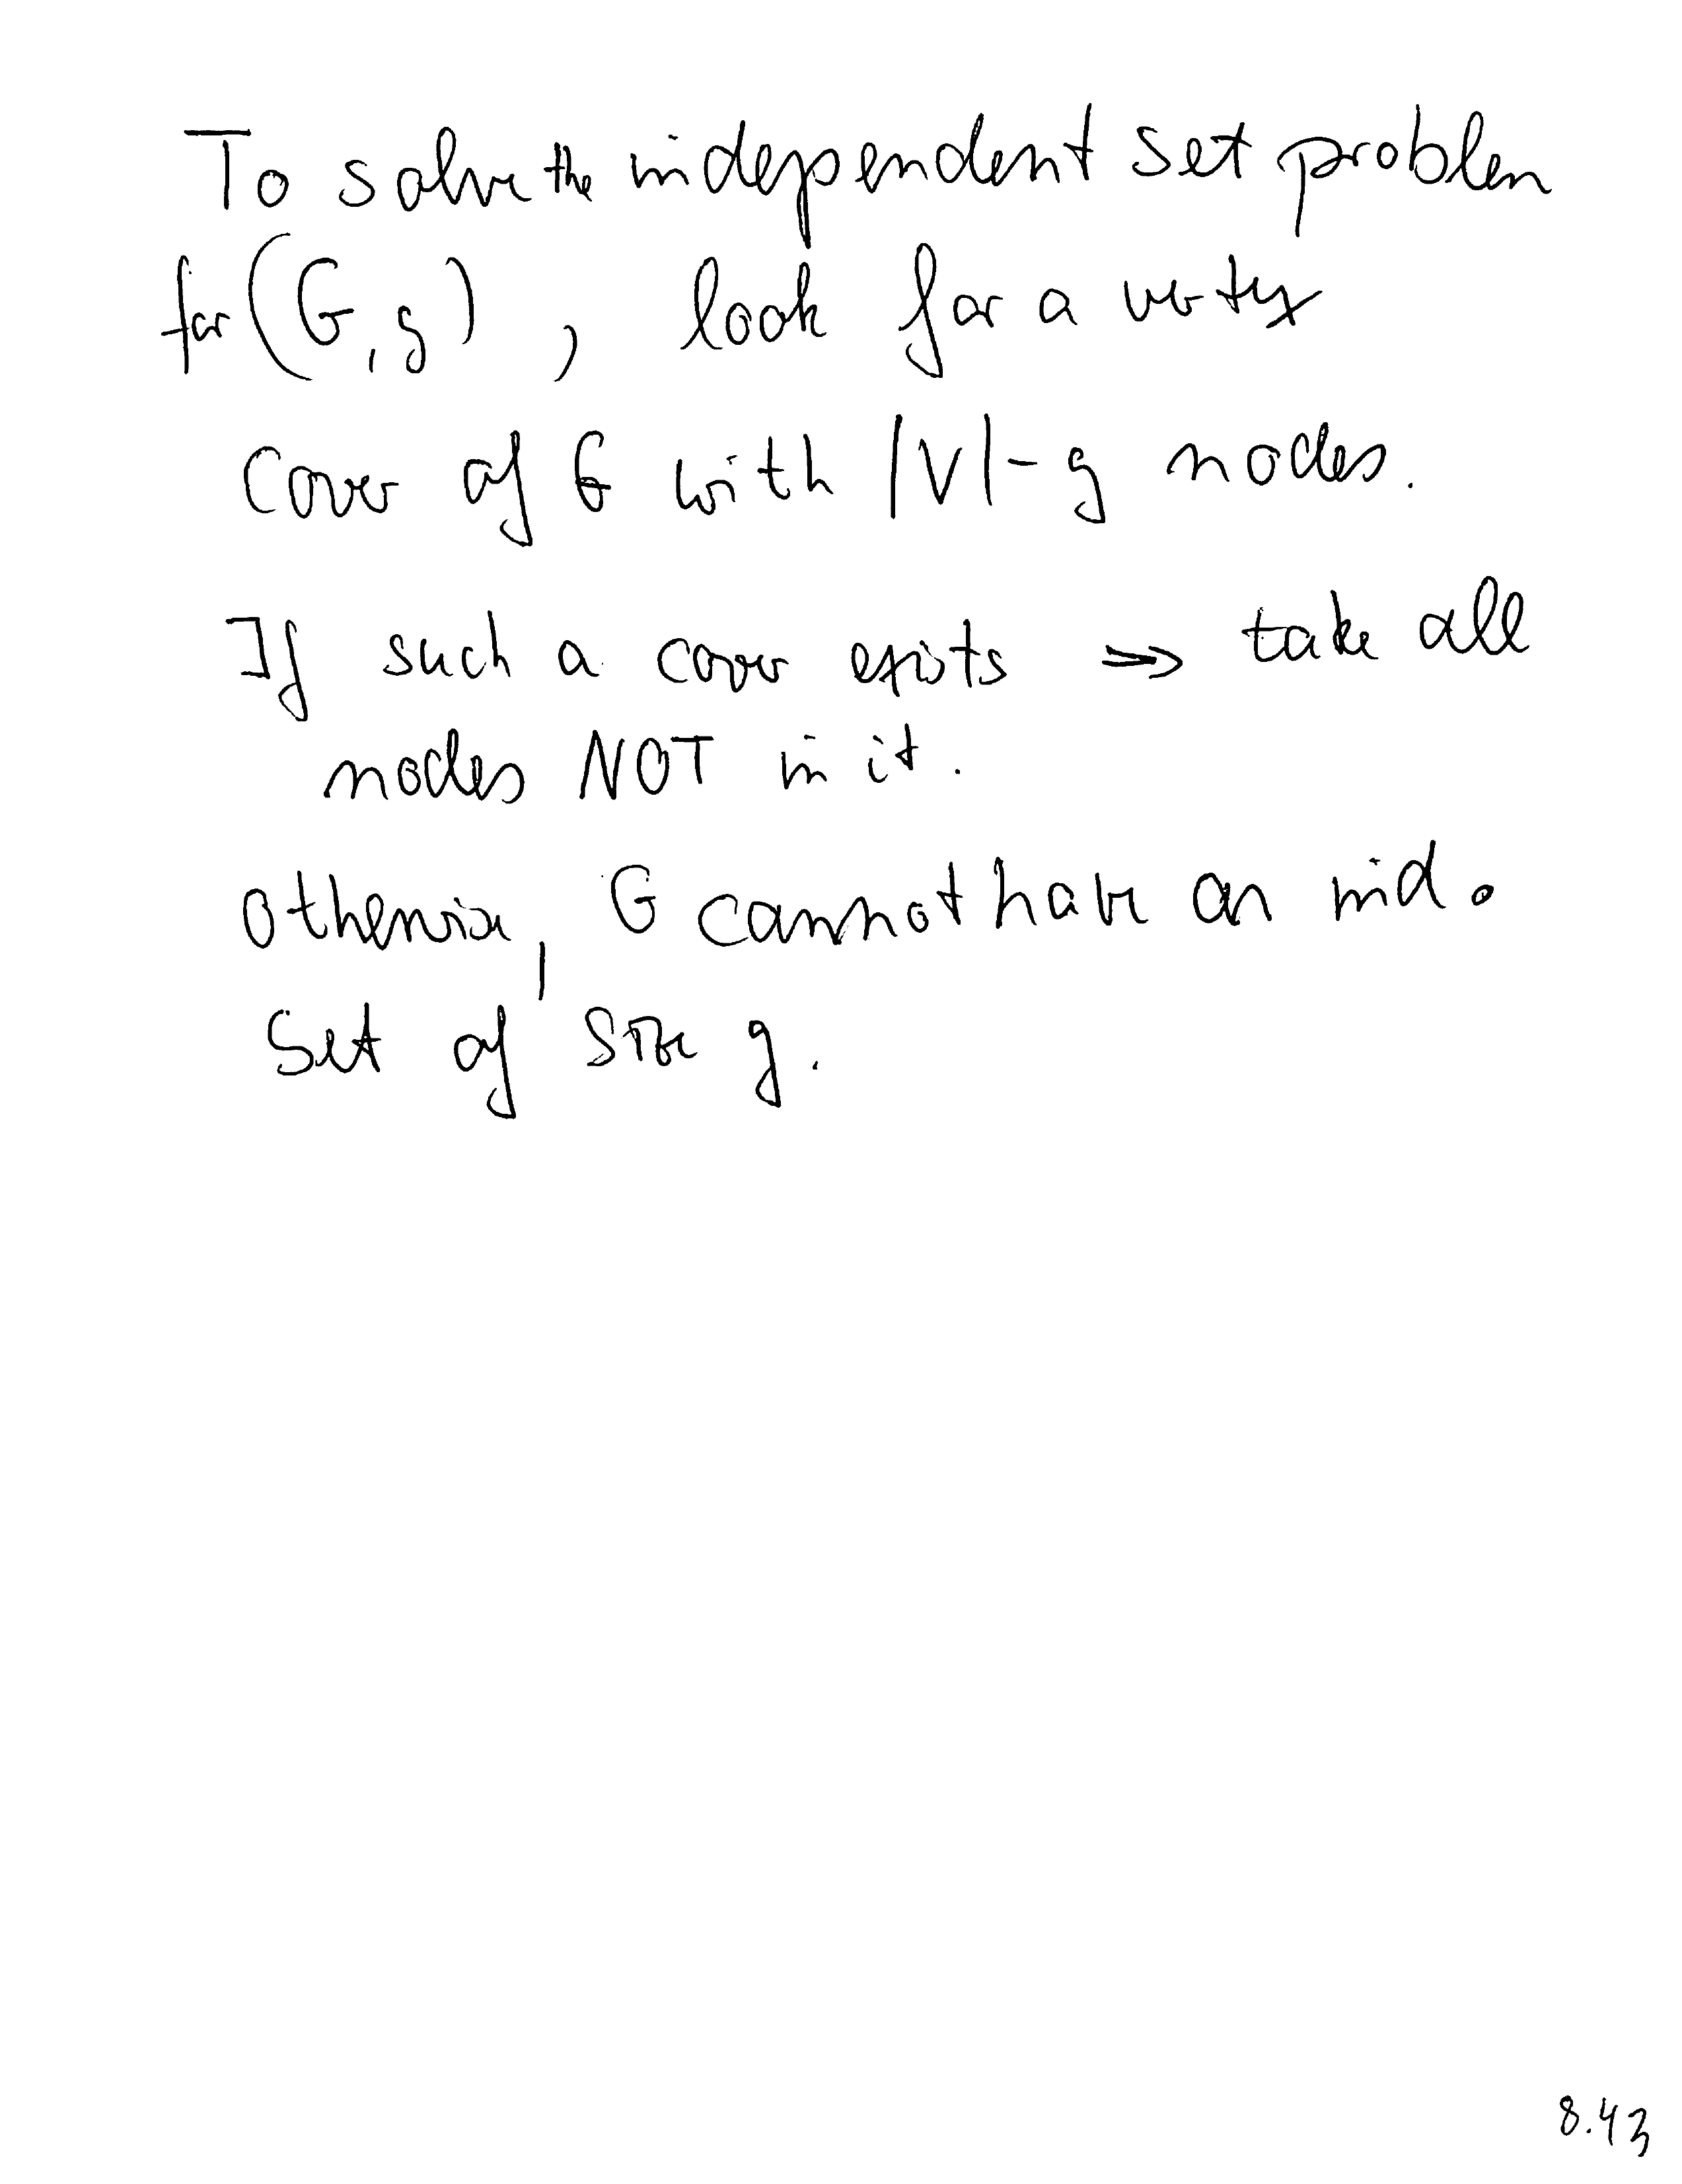 To solve the independent set problem
for (G, g), look for a vertex
cover of G with |V| - g nodes.
If such a cover exists => take all
nodes NOT in it.
Otherwise, G cannot have an ind.
set of size g.
8.43